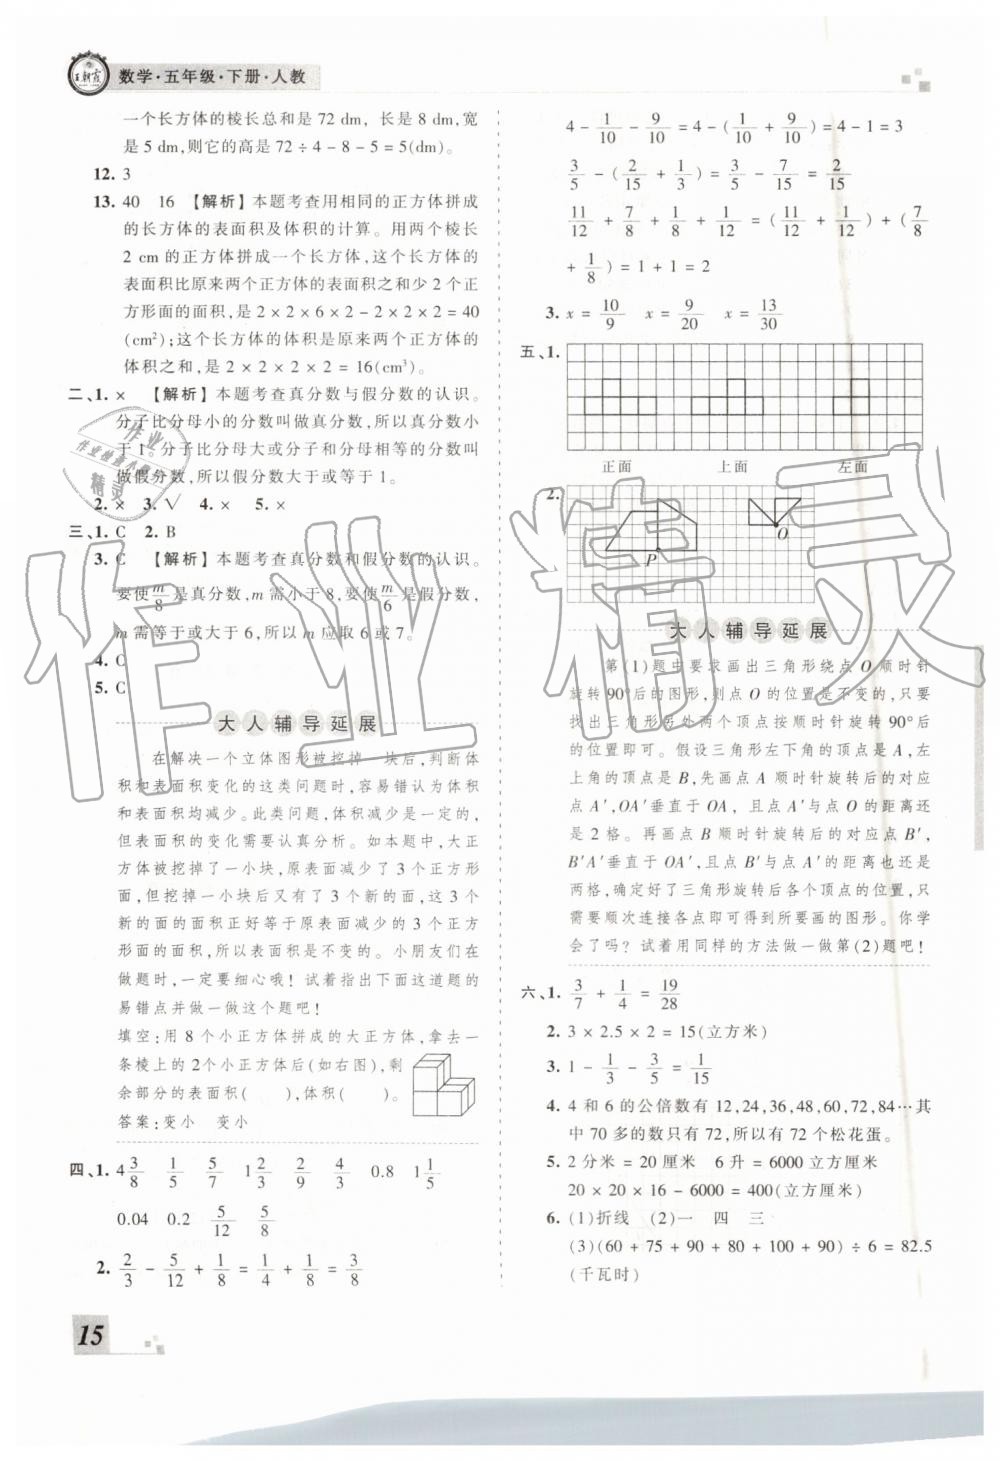 王朝霞
数学·五年级·下册·人教
一个长方体的棱长总和是 72 dm, 长是 8 dm,宽
是 5 dm,则它的高是 72 ÷ 4 - 8 - 5 = 5(dm)。
12. 3
13. 40 16 【解析】本题考查用相同的正方体拼成
的长方体的表面积及体积的计算。用两个棱长
2 cm 的正方体拼成一个长方体,这个长方体的
表面积比原来两个正方体的表面积之和少 2 个正
方形面的面积,是 2 × 2 × 6 × 2 - 2 × 2 × 2 = 40
(cm²);这个长方体的体积是原来两个正方体的
体积之和,是 2 × 2 × 2 × 2 = 16(cm³)。
二、1. × 【解析】本题考查真分数与假分数的认识。
分子比分母小的分数叫做真分数,所以真分数小
于 1。分子比分母大或分子和分母相等的分数叫
做假分数,所以假分数大于或等于 1。
2. × 3. √ 4. × 5. ×
三、1. C 2. B
3. C 【解析】本题考查真分数和假分数的认识。
要使 m/8 是真分数,m 需小于 8,要使 m/6 是假分数,
m 需等于或大于 6,所以 m 应取 6 或 7。
4. C
5. C
大人辅导延展
在解决一个立体图形被挖掉一块后,判断体
积和表面积变化的这类问题时,容易错认为体积
和表面积均减少。此类问题,体积减少是一定的,
但表面积的变化需要认真分析。如本题中,大正
方体被挖掉了一小块,原表面减少了 3 个正方形
面,但挖掉一小块后又有了 3 个新的面,这 3 个
新的面的面积正好等于原表面减少的 3 个正方
形面的面积,所以表面积是不变的。小朋友们在
做题时,一定要细心哦!试着指出下面这道题的
易错点并做一做这个题吧!
填空:用 8 个小正方体拼成的大正方体,拿去一
条棱上的 2个小正方体后(如右图),剩
余部分的表面积( ),体积( )。
答案:变小 变小
四、1. 4 3/8 1/5 5/7 1 2/3 2/9 4/3 0.8 1 1/5
0.04 0.2 5/12 5/8
2. 2/3 - 5/12 + 1/8 = 1/4 + 1/8 = 3/8
4 - 1/10 - 9/10 = 4 - (1/10 + 9/10) = 4 - 1 = 3
3/5 - (2/15 + 1/3) = 3/5 - 7/15 = 2/15
11/12 + 7/8 + 1/8 + 1/12 = (11/12 + 1/12) + (7/8
+ 1/8) = 1 + 1 = 2
3. x = 10/9 x = 9/20 x = 13/30
五、1.
正面 上面 左面
2.
P
O
大人辅导延展
第(1)题中要求画出三角形绕点 O 顺时针
旋转 90°后的图形,则点 O 的位置是不变的,只要
找出三角形另外两个顶点按顺时针旋转 90°后
的位置即可。假设三角形左下角的顶点是 A,左
上角的顶点是 B,先画点 A 顺时针旋转后的对应
点 A′,OA′垂直于 OA, 且点 A′与点 O 的距离还
是 2 格。再画点 B 顺时针旋转后的对应点 B′,
B′A′垂直于 OA′,且点 B′与点 A′的距离也还是
两格,确定好了三角形旋转后各个顶点的位置,只
需要顺次连接各点即可得到所要画的图形。你学
会了吗?试着用同样的方法做一做第(2)题吧!
六、1. 3/7 + 1/4 = 19/28
2. 3 × 2.5 × 2 = 15(立方米)
3. 1 - 1/3 - 3/5 = 1/15
4. 4 和 6 的公倍数有 12,24,36,48,60,72,84…其
中 70 多的数只有 72,所以有 72 个松花蛋。
5. 2 分米 = 20 厘米 6 升 = 6000 立方厘米
20 × 20 × 16 - 6000 = 400(立方厘米)
6. (1)折线 (2)一 四 三
(3)(60 + 75 + 90 + 80 + 100 + 90) ÷ 6 = 82.5
(千瓦时)
15
作业精灵